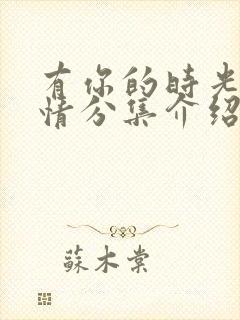 有你的時光
情分集介紹
蘇木棠